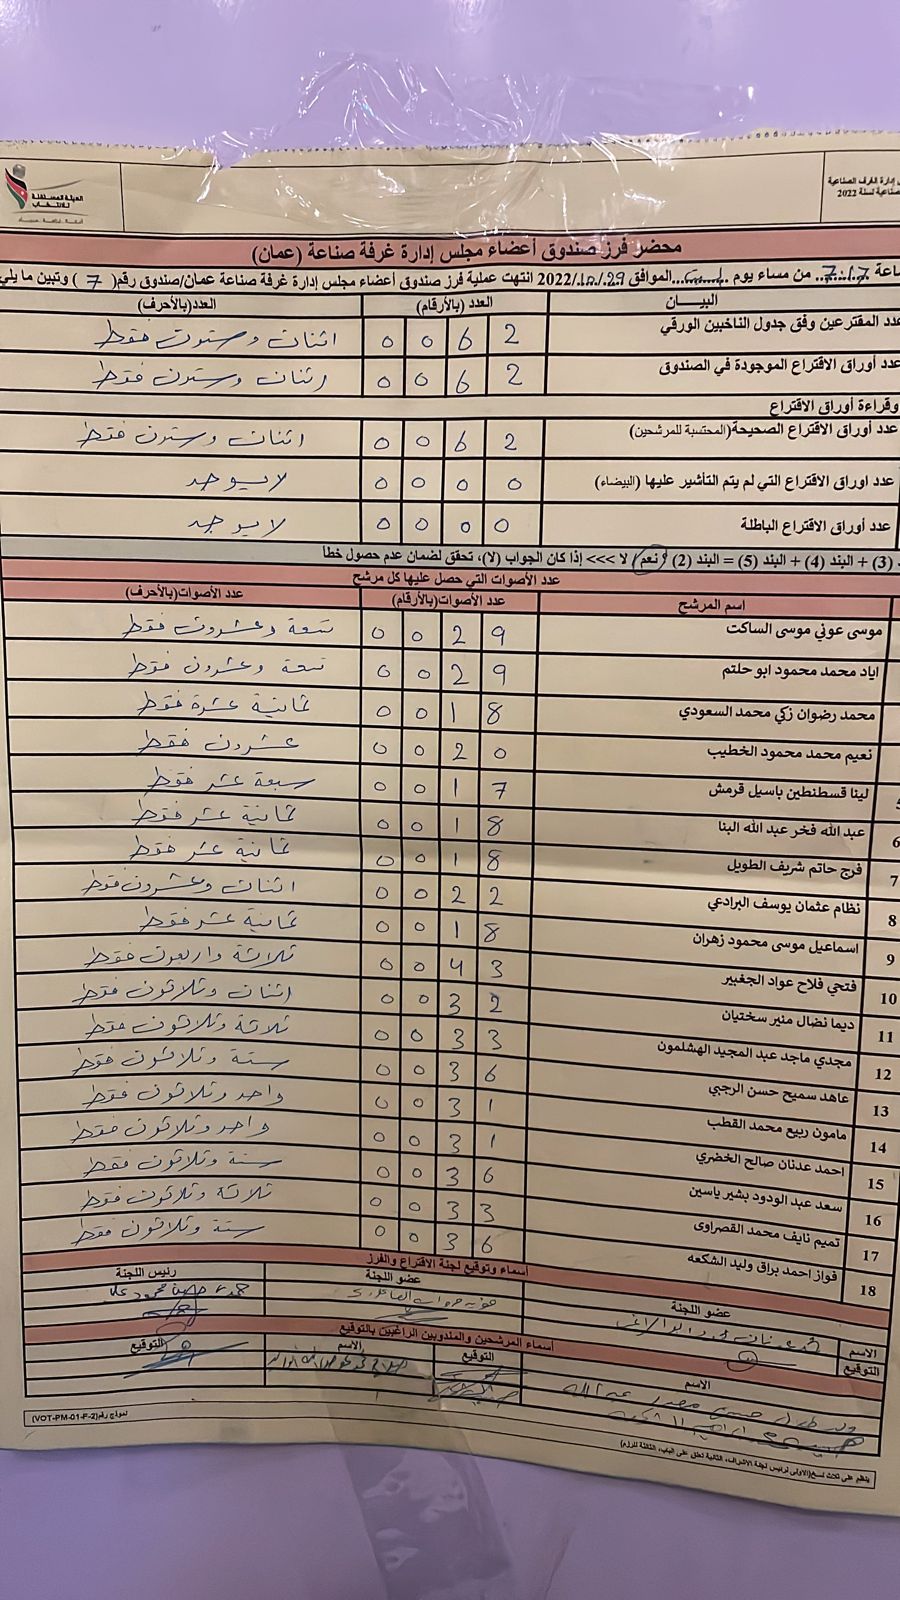 الهيئة المستقلة
للانتخاب
إدارة الغرف الصناعية
صناعية لسنة 2022
محضر فرز صندوق أعضاء مجلس إدارة غرفة صناعة (عمان)
ساعة 7:17 من مساء يوم السبت الموافق 2022/10/29 انتهت عملية فرز صندوق أعضاء مجلس إدارة غرفة صناعة عمان/صندوق رقم( 7 ) وتبين ما يلي
البيــــان العدد (بالأرقام) العدد(بالأحرف)
عدد المقترعين وفق جدول الناخبين الورقي 2 6 0 0 اثنان وستون فقط
عدد أوراق الاقتراع الموجودة في الصندوق 2 6 0 0 اثنان وستون فقط
وقراءة أوراق الاقتراع
عدد أوراق الاقتراع الصحيحة(المحتسبة للمرشحين) 2 6 0 0 اثنان وستون فقط
عدد اوراق الاقتراع التي لم يتم التأشير عليها (البيضاء) 0 0 0 0 لا يوجد
عدد أوراق الاقتراع الباطلة 0 0 0 0 لا يوجد
(3) + البند (4) + البند (5) = البند (2) ؟ نعم / لا >>> إذا كان الجواب (لا)، تحقق لضمان عدم حصول خطأ
عدد الأصوات التي حصل عليها كل مرشح
اسم المرشح عدد الأصوات(بالأرقام) عدد الأصوات(بالأحرف)
موسى عوني موسى الساكت 9 2 0 0 تسعة وعشرون فقط
اياد محمد محمود ابو حلتم 9 2 0 0 تسعة وعشرون فقط
محمد رضوان زكي محمد السعودي 8 1 0 0 ثمانية عشرة فقط
نعيم محمد محمود الخطيب 0 2 0 0 عشرون فقط
5 لينا قسطنطين باسيل قرمش 7 1 0 0 سبعة عشر فقط
6 عبد الله فخر عبد الله البنا 8 1 0 0 ثمانية عشر فقط
7 فرج حاتم شريف الطويل 8 1 0 0 ثمانية عشر فقط
8 نظام عثمان يوسف البرادعي 2 2 0 0 اثنان وعشرون فقط
9 اسماعيل موسى محمود زهران 8 1 0 0 ثمانية عشر فقط
10 فتحي فلاح عواد الجغبير 3 4 0 0 ثلاثة واربعون فقط
11 ديما نضال منير سختيان 2 3 0 0 اثنان وثلاثون فقط
12 مجدي ماجد عبد المجيد الهشلمون 3 3 0 0 ثلاثة وثلاثون فقط
13 عاهد سميح حسن الرجبي 6 3 0 0 ستة وثلاثون فقط
14 مامون ربيع محمد القطب 1 3 0 0 واحد وثلاثون فقط
15 احمد عدنان صالح الخضري 1 3 0 0 واحد وثلاثون فقط
16 سعد عبد الودود بشير ياسين 6 3 0 0 ستة وثلاثون فقط
17 تميم نايف محمد القصراوى 3 3 0 0 ثلاثة وثلاثون فقط
18 فواز احمد براق وليد الشكعه 6 3 0 0 ستة وثلاثون فقط
أسماء وتوقيع لجنة الاقتراع والفرز
عضو اللجنة عضو اللجنة رئيس اللجنة
الاسم
التوقيع
أسماء المرشحين والمندوبين الراغبين بالتوقيع
الاسم التوقيع الاسم التوقيع
نموذج رقم(VOT-PM-01-F-2)
ينظم على ثلاث نسخ(الاولى لرئيس لجنة الاشراف، الثانية تعلق على الباب، الثالثة للرزم)